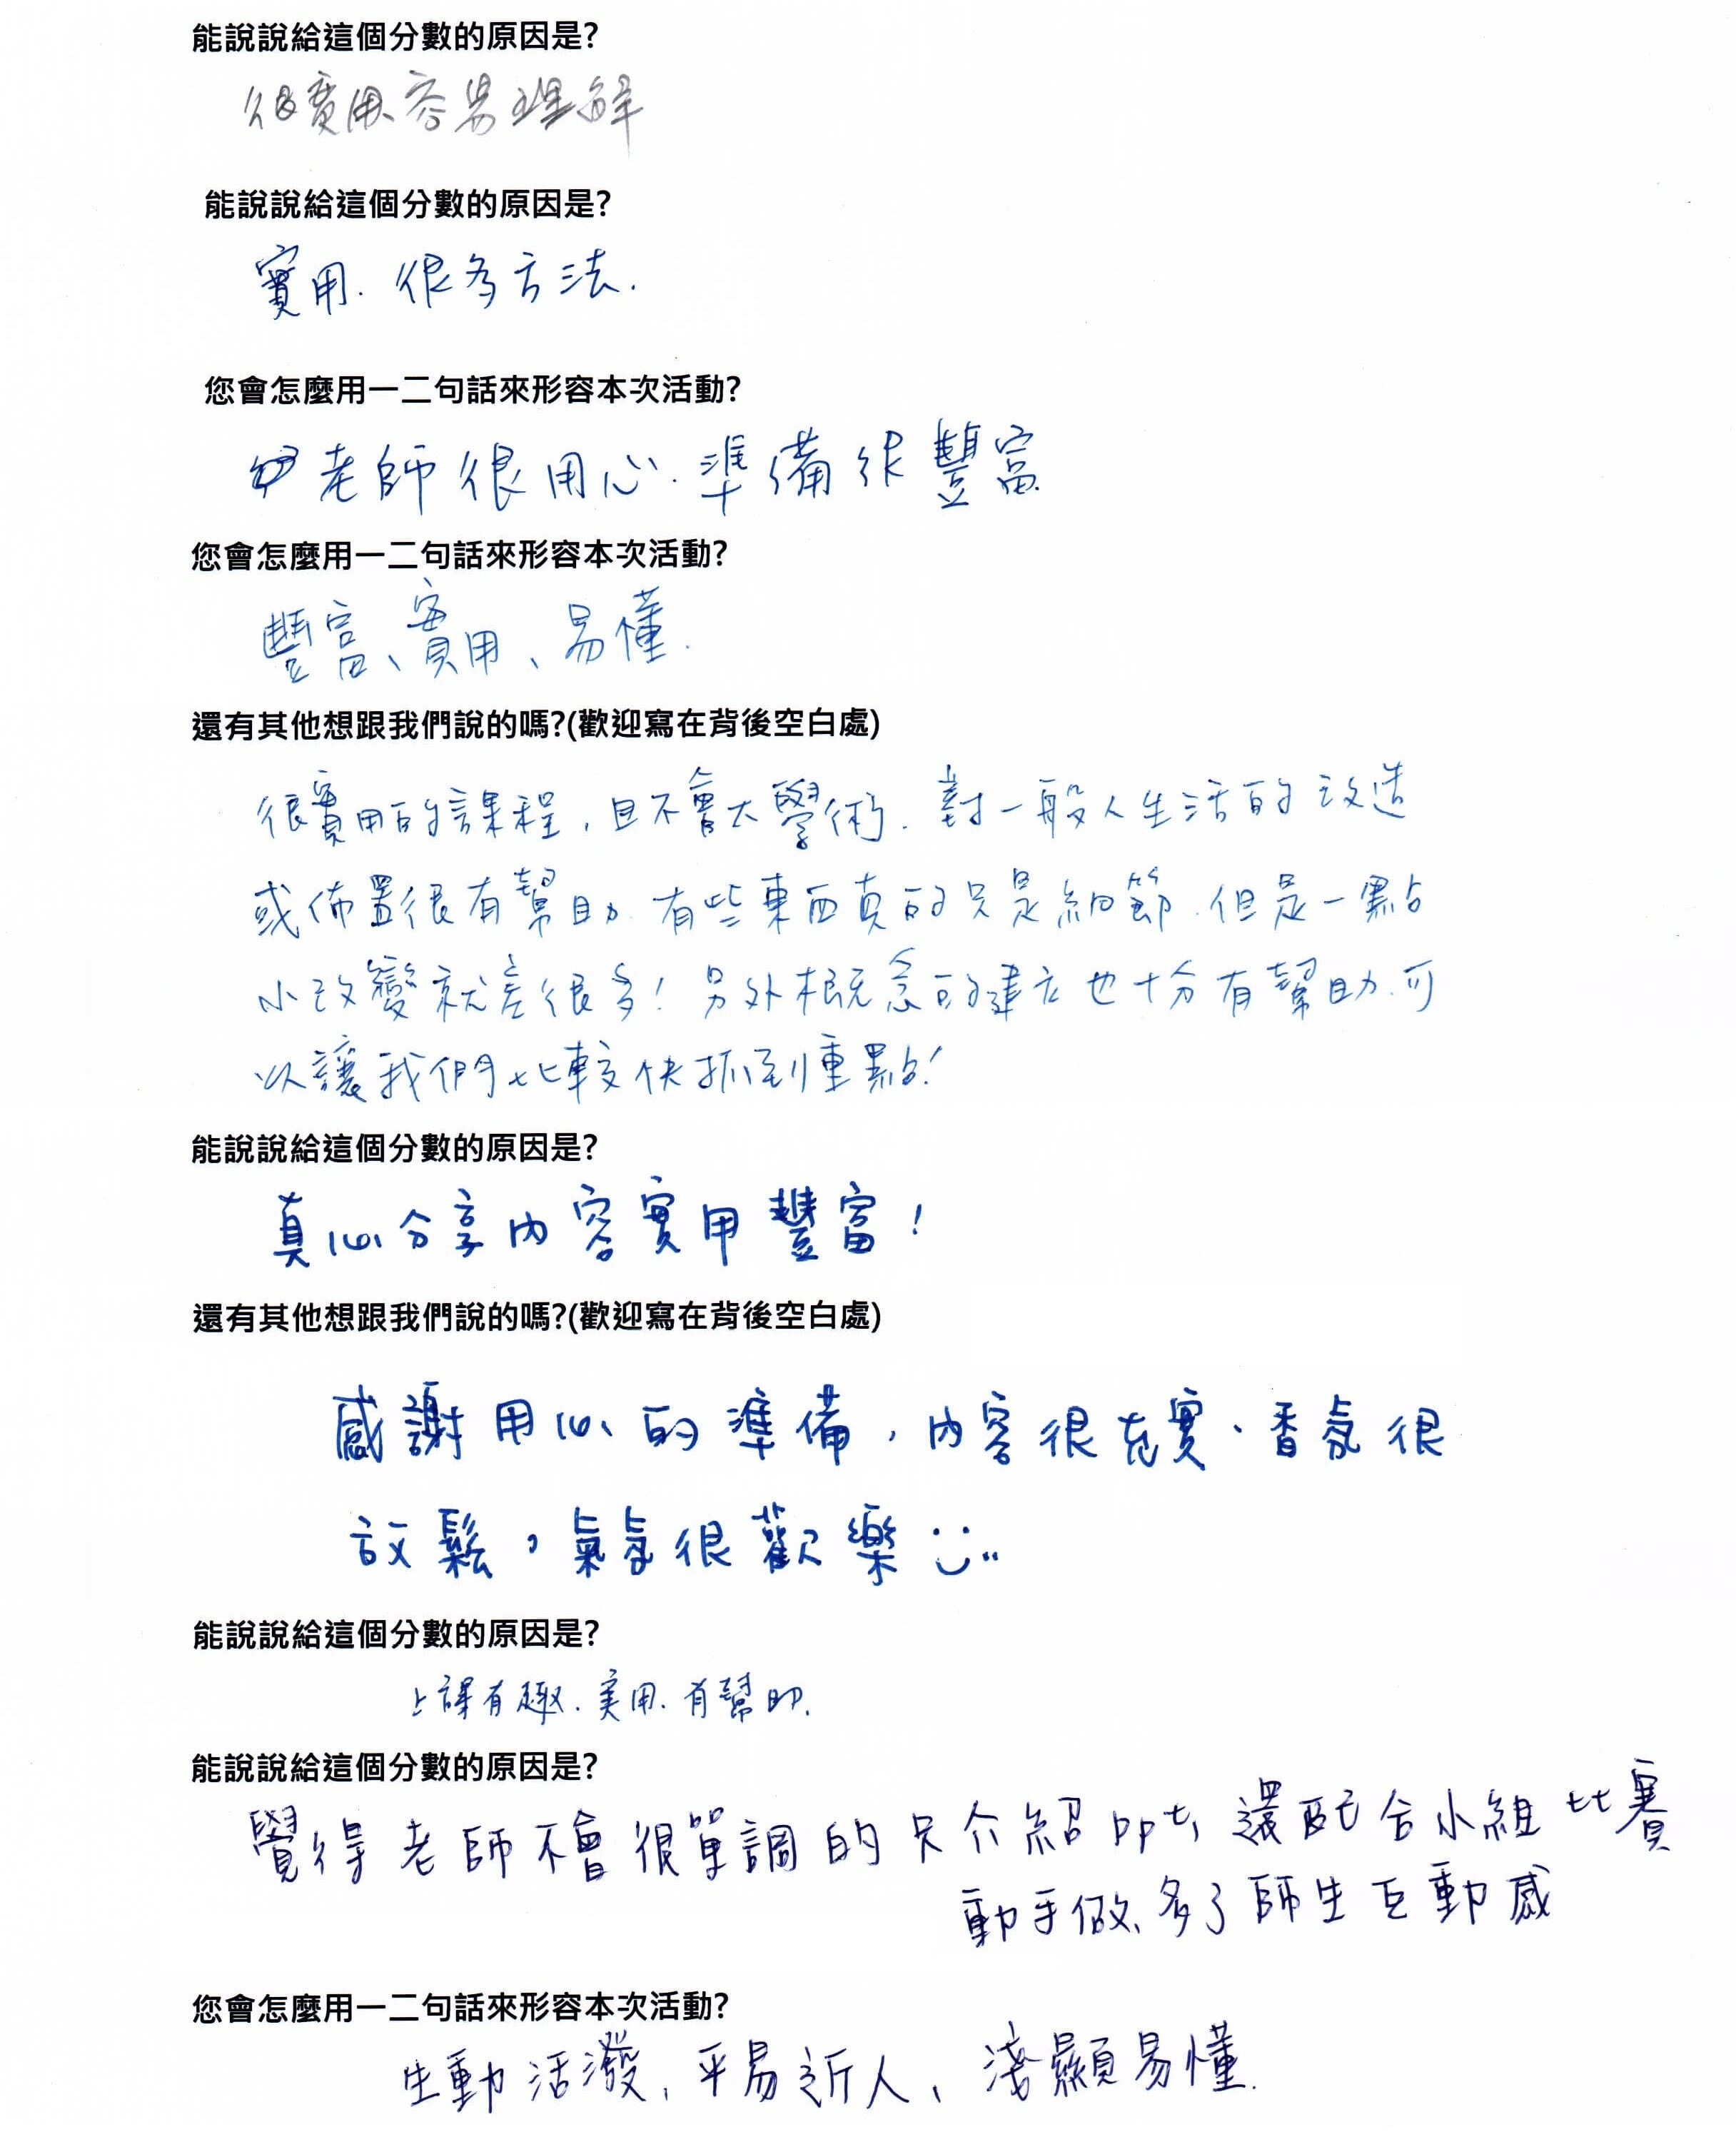 能說說給這個分數的原因是?
很實用、容易理解
能說說給這個分數的原因是?
實用. 很多方法.
您會怎麼用一二句話來形容本次活動?
老師很用心. 準備很豐富.
您會怎麼用一二句話來形容本次活動?
豐富、實用、易懂.
還有其他想跟我們說的嗎?(歡迎寫在背後空白處)
很實用的課程, 且不會太學術. 對一般人生活的改造
或佈置很有幫助. 有些東西真的只是細節. 但是一點
小改變就差很多! 另外概念的建立也十分有幫助. 可
以讓我們比較快抓到重點!
能說說給這個分數的原因是?
真心分享內容實用豐富!
還有其他想跟我們說的嗎?(歡迎寫在背後空白處)
感謝用心的準備, 內容很充實、香氛很
放鬆, 氣氛很歡樂
能說說給這個分數的原因是?
上課有趣. 実用. 有幫助.
能說說給這個分數的原因是?
覺得老師不會很單調的只介紹ppt, 還配合小組比賽
動手做、多了師生互動感
您會怎麼用一二句話來形容本次活動?
生動活潑、平易近人、淺顯易懂.